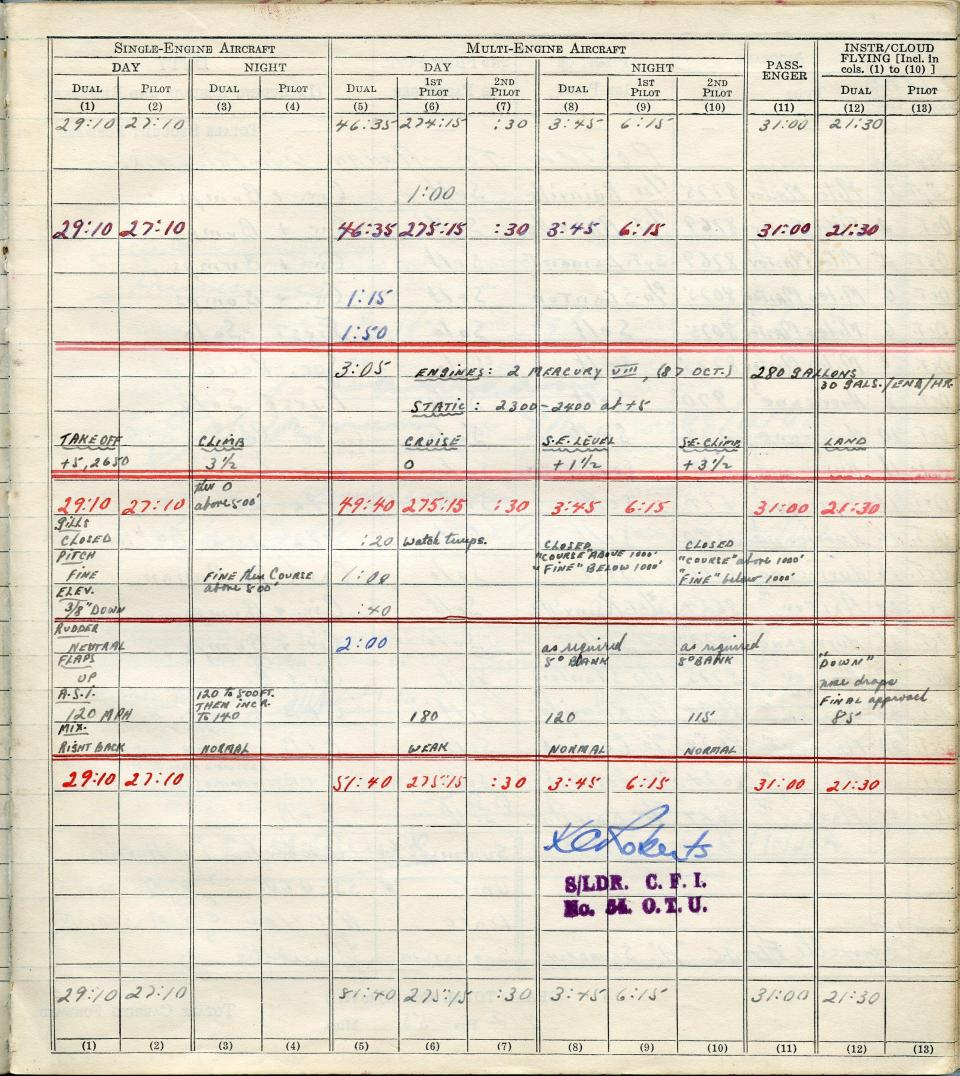 SINGLE-ENGINE AIRCRAFT MULTI-ENGINE AIRCRAFT PASS-ENGER INSTR/CLOUD FLYING [Incl. in cols. (1) to (10) ]
DAY NIGHT DAY NIGHT
DUAL PILOT DUAL PILOT DUAL 1ST PILOT 2ND PILOT DUAL 1ST PILOT 2ND PILOT DUAL PILOT
(1) (2) (3) (4) (5) (6) (7) (8) (9) (10) (11) (12) (13)
29:10 27:10 46:35 274:15 :30 3:45 6:15 31:00 21:30
1:00
29:10 27:10 46:35 275:15 :30 3:45 6:15 31:00 21:30
1:15
1:50
3:05 ENGINES: 2 MERCURY VIII, (87 OCT.) 280 GALLONS
30 GALS./ENG/HR.
STATIC: 2300-2400 at +5
TAKE OFF CLIMB CRUISE S.E. LEVEL S.E. CLIMB LAND
+5, 2650 3 1/2 0 +1 1/2 +3 1/2
then 0
above 500'
29:10 27:10 49:40 275:15 :30 3:45 6:15 31:00 21:30
GILLS
CLOSED :20 Watch temps. CLOSED CLOSED
PITCH "COURSE" ABOVE 1000' "COURSE" above 1000'
FINE FINE then COURSE above 500' 1:00 "FINE" BELOW 1000' "FINE" below 1000'
ELEV.
3/8" DOWN :40
RUDDER
NEUTRAL 2:00 as required as required
FLAPS 5° BANK 5° BANK "DOWN"
UP nose drops
A.S.I. 120 to 500 FT. FINAL approach
120 MPH THEN INCR. TO 140 180 120 115 85
MIX.
RIGHT BACK NORMAL WEAK NORMAL NORMAL
29:10 27:10 51:40 275:15 :30 3:45 6:15 31:00 21:30
KC Roberts
S/LDR. C. F. I.
No. 54. O. T. U.
29:10 27:10 81:40 275:15 :30 3:45 6:15 31:00 21:30
(1) (2) (3) (4) (5) (6) (7) (8) (9) (10) (11) (12) (13)